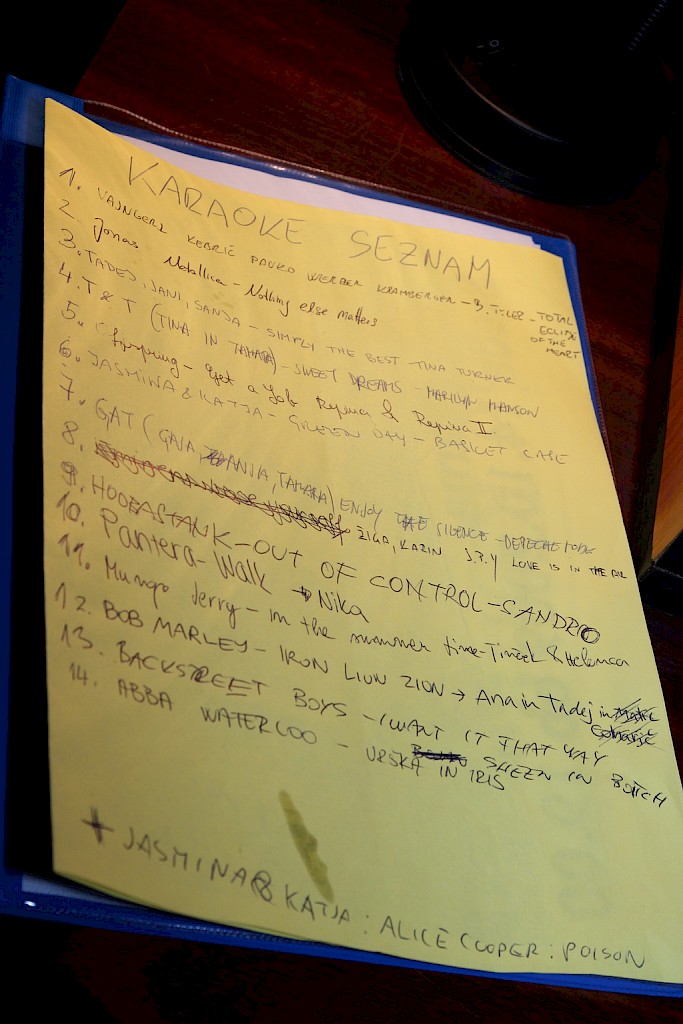 KARAOKE SEZNAM
1. VAJNGERL KEBRIČ PAVKO WERBER KRAMBERGER - B. TYLER - TOTAL
ECLIPSE
OF THE
HEART
2. Jonas Metallica - Nothing else matters
3. TADEJ, JANI, SANJA - SIMPLY THE BEST TINA TURNER
4. T & T (TINA IN TAMARA) - SWEET DREAMS - MARILYN MANSON
5. - Get a Job Rejina & Rejina II
6. JASMINA & KATJA - GREEN DAY - BASKET CASE
7. GAT (GAJA, ANJA, TAMARA) ENJOY THE SILENCE - DEPECHE MODE
8. ŽIGA, KARIN J.P.Y LOVE IS IN THE AIR
9. HOOBASTANK - OUT OF CONTROL - SANDRO
10. Pantera - Walk → Nika
11. Mungo Jerry - in the summer time - Tinček & Helenca
12. BOB MARLEY - IRON LIUN ZION → Ana in Tadej in
13. BACKSTREET BOYS - I WANT IT THAT WAY
SHEEN IN BOTCH
14. ABBA WATERLOO - URŠKA IN IRIS
+ JASMINA & KATJA : ALICE COOPER : POISON